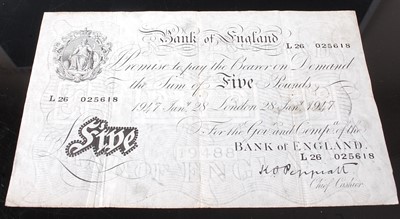 Bank of England
L 26 025618
Promise to pay the Bearer on Demand
the Sum of Five Pounds
L 26 025618
1947 Jany. 28 London 28 Jany. 1947
For the Govr. and Compa. of the
BANK of ENGLAND.
Five
L 26 025618
K O Peppiatt
Chief Cashier